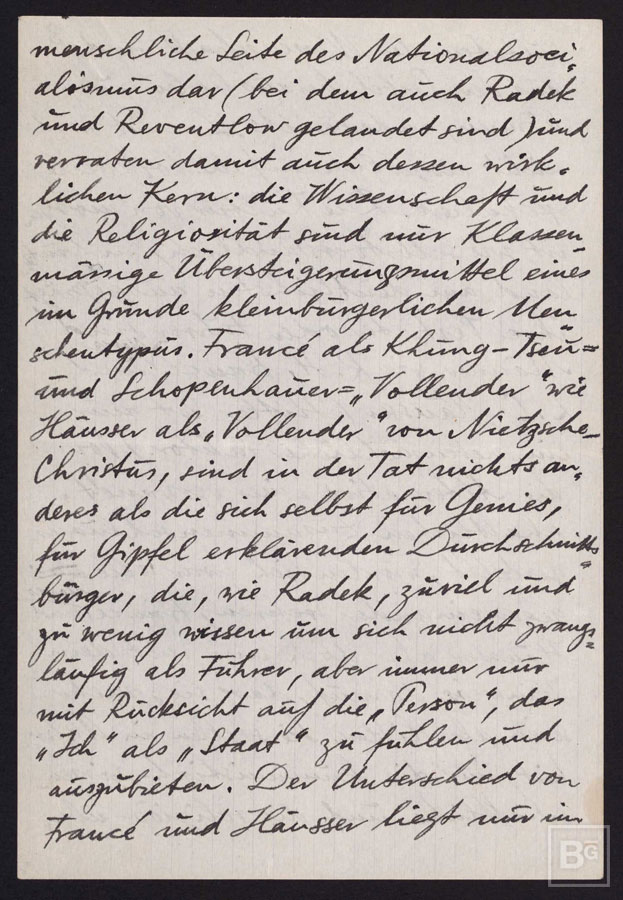 menschliche Seite des Nationalsozi-
alismus dar (bei dem auch Radek
und Reventlow gelandet sind) und
verraten damit auch dessen wirk-
lichen Kern: die Wissenschaft und
die Religiosität sind nur Klassen
mässige Übersteigerungsmittel eines
im Grunde kleinbürgerlichen Men
schentypus. Francé als Khung-Tseu=
und Schopenhauer=„Vollender" wie
Häusser als „Vollender" von Nietzsche-
Christus, sind in der Tat nichts an-
deres als die sich selbst für Genies,
für Gipfel erklärenden Durchschnitts
bürger, die, wie Radek, zuviel und
zu wenig wissen um sich nicht zwangs=
läufig als Führer, aber immer nur
mit Rücksicht auf die „Person", das
„Ich" als „Staat" zu fühlen und
auszubieten. Der Unterschied von
Francé und Häusser liegt nur im
BG